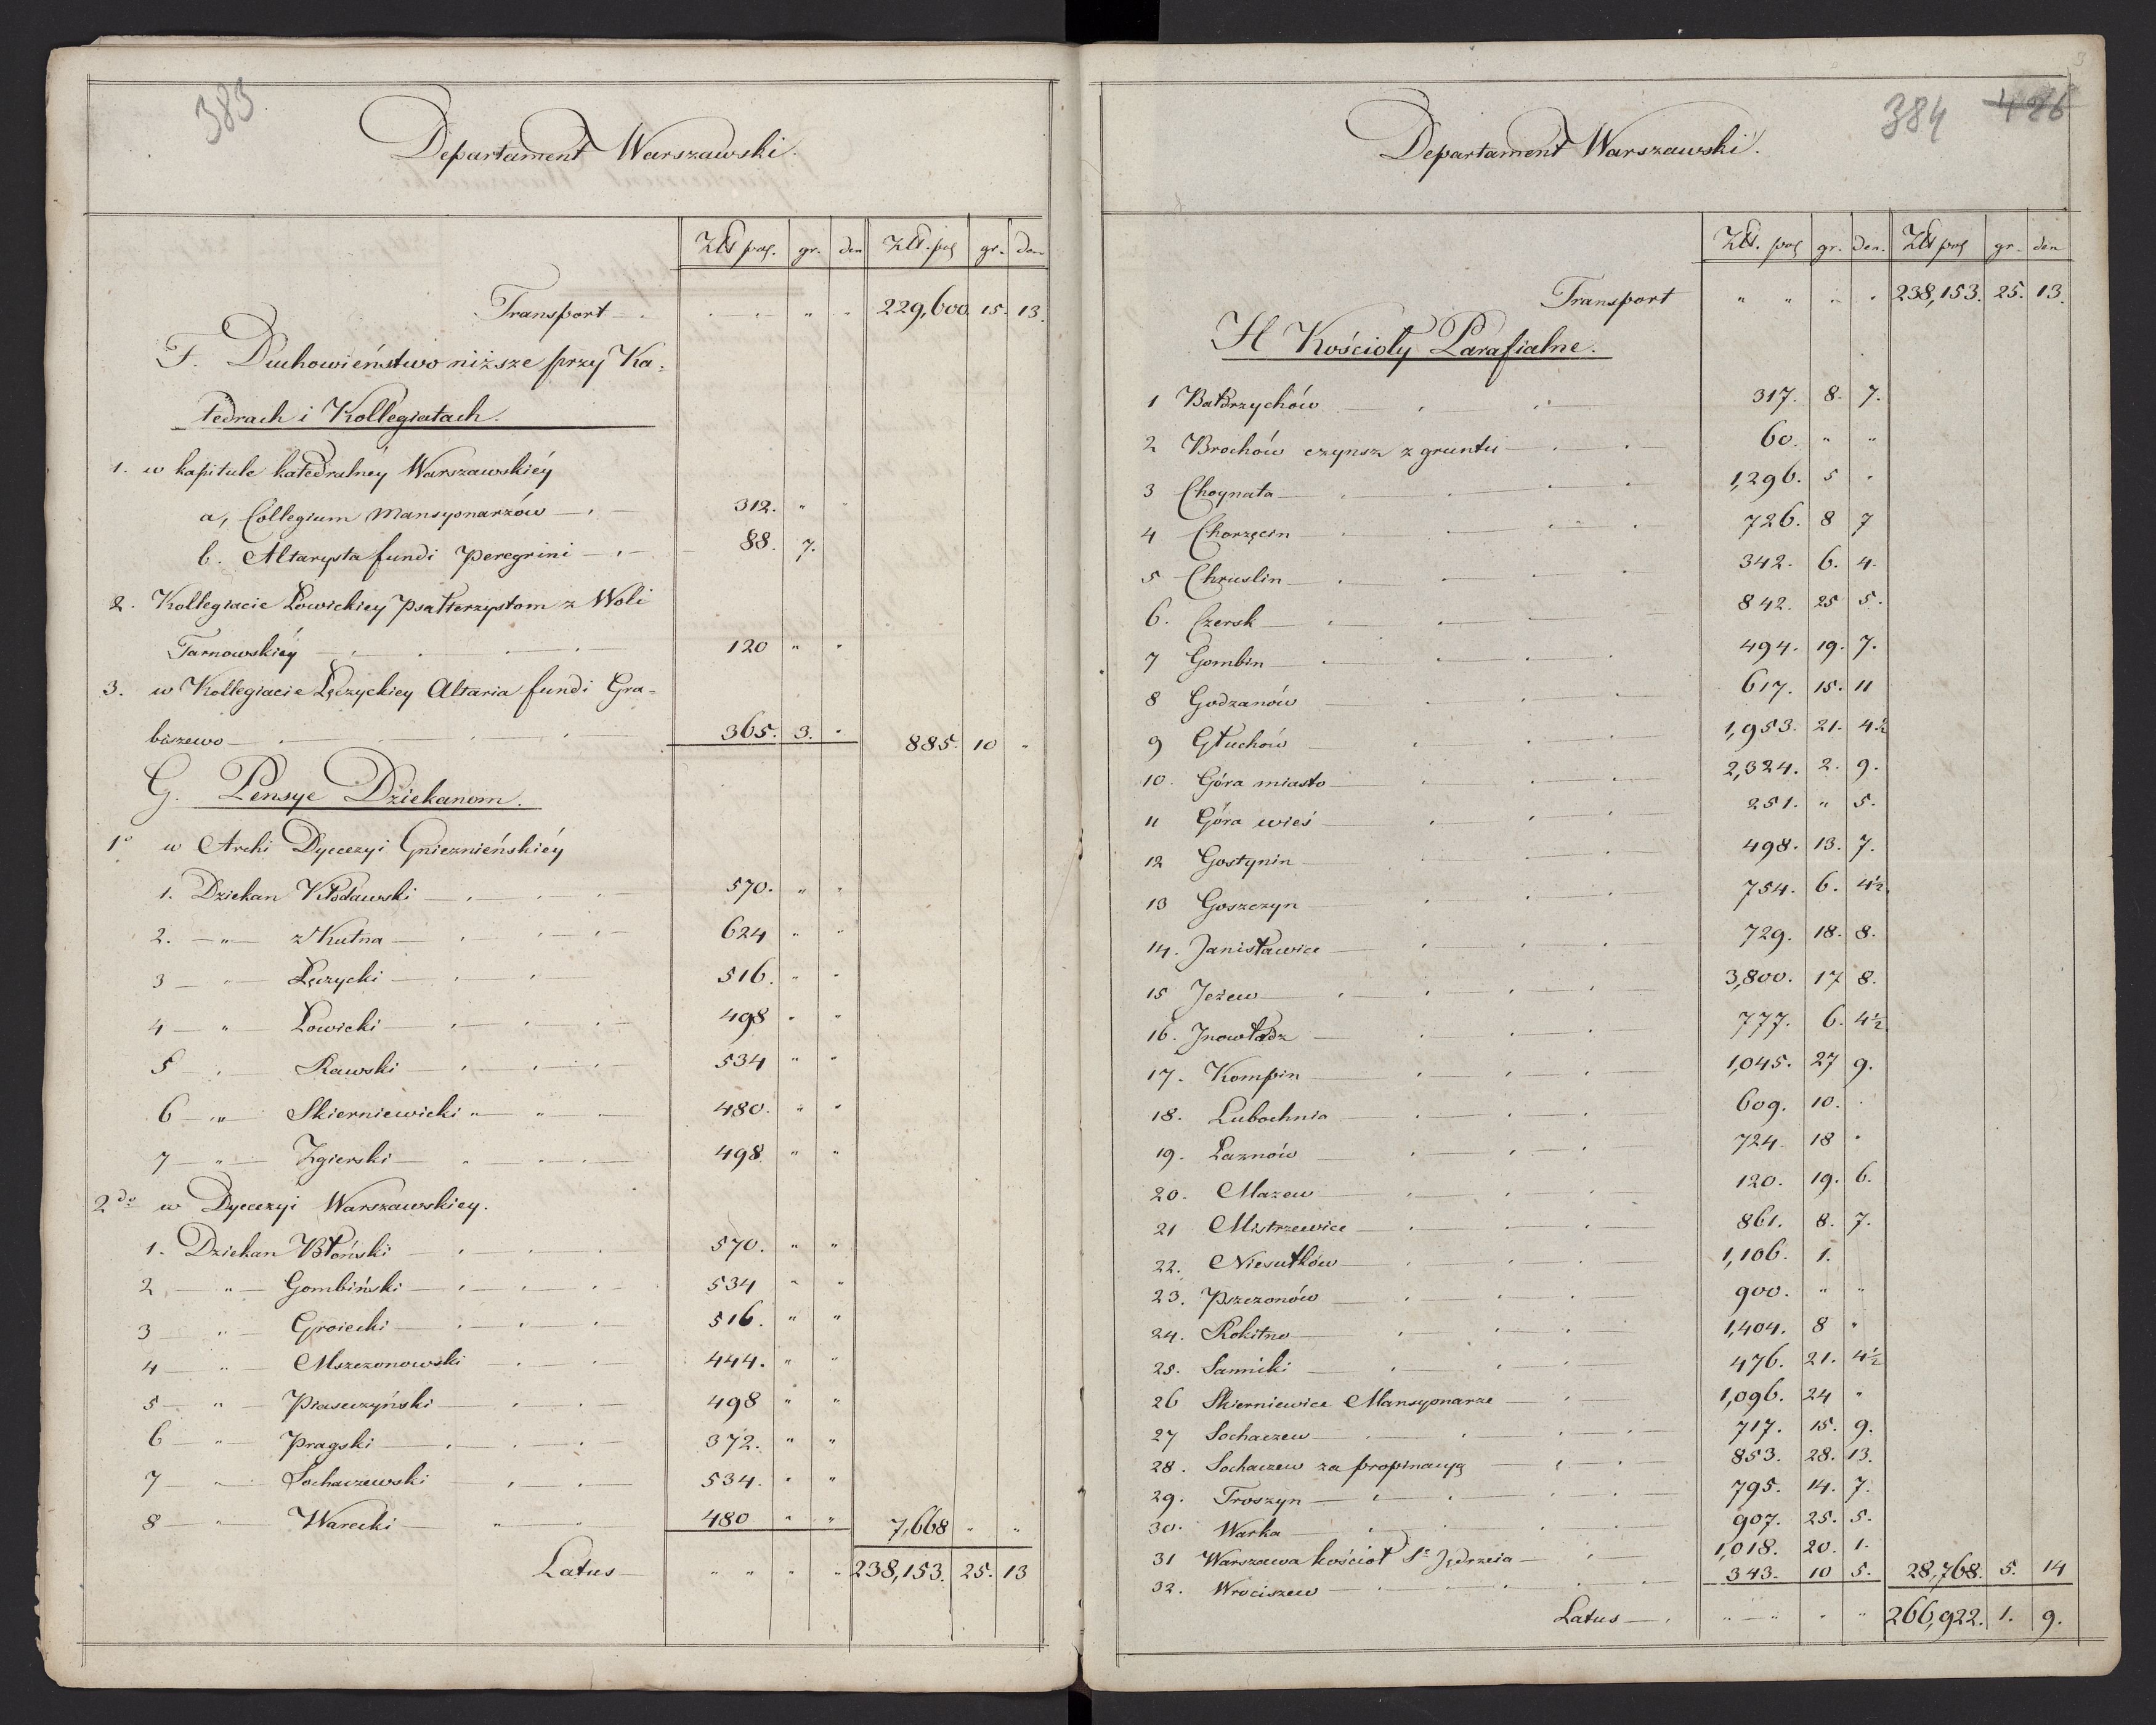 383
Departament Warszawski.
Złt pol. gr. den Złt. pol gr. den
Transport 229,600. 15. 13.
F. Duchowieństwo niższe przy Ka-
tedrach i Kollegiatach.
1. w kapitule katedralnéy Warszawskiéy
a, Collegium Mansyonarzów 312. " "
b. Altarysta fundi Peregrini 88. 7.
2. Kollegiacie Łowickiey Psałterzystom z Woli
Tarnowskiéy 120 " "
3. w Kollegiacie Łęczyckiey Altaria fundi Gra-
biszewo 365. 3. " 885. 10 "
G. Pensye Dziekanom.
1o w Archi Dyecezyi Gnieznieńskiéy
1. Dziekan Kłodawski 570. " "
2. " z Kutna 624 " "
3 " Łęczycki 516. " "
4 " Łowicki 498 " "
5 " Rawski 534 " "
6 " Skierniewicki 480. " "
7 " Zgierski 498 " "
2do w Dyecezyi Warszawskiey.
1. Dziekan Błoński 570. " "
2 " Gombiński 534 " "
3 " Groiecki 516. " "
4 " Mszczonowski 444. " "
5 " Piaseczyński 498 " "
6 " Pragski 372. " "
7 " Sochaczewski 534. " "
8 " Warecki 480 " " 7,668 " "
Latus " " " " 238,153. 25. 13
384 426
Departament Warszawski.
Złt. pol gr. den. Złt pol gr. den
Transport " " " " 238,153. 25. 13.
H Kościoły Parafialne.
1 Bałdrzychów 317. 8. 7.
2 Brochów czynsz z gruntu 60. " "
3 Choynata 1,296. 5 "
4 Chorzęcin 726. 8 7
5 Chruslin 342. 6. 4.
6. Czersk 842. 25 5.
7 Gombin 494. 19. 7.
8 Godzanów 617. 15. 11
9 Głuchów 1,953. 21. 4½
10. Góra miasto 2,324. 2. 9.
11 Góra wieś 251. " 5.
12 Gostynin 498. 13. 7.
13 Goszczyn 754. 6. 4½
14. Janisławice 729. 18. 8.
15 Jeżew 3,800. 17 8.
16. Jnowłódz 777. 6. 4½
17. Kompin 1,045. 27 9.
18. Lubochnia 609. 10. "
19. Łaznów 724. 18 "
20. Mazew 120. 19. 6.
21 Mistrzewice 861. 8. 7.
22. Niesułków 1,106. 1.
23. Pszczonów 900. " "
24. Rokitno 1,404. 8 "
25. Sanniki 476. 21. 4½
26 Skierniewice Mansyonarze 1,096. 24 "
27 Sochaczew 717. 15. 9.
28. Sochaczew za propinacyą 853. 28. 13.
29. Troszyn 795. 14. 7.
30. Warka 907. 25. 5.
31 Warszawa kościoł So Jędrzeia 1,018. 20. 1.
32. Wrociszew 343. 10 5. 28,768. 5. 14
Latus " " " " 266,922. 1. 9.